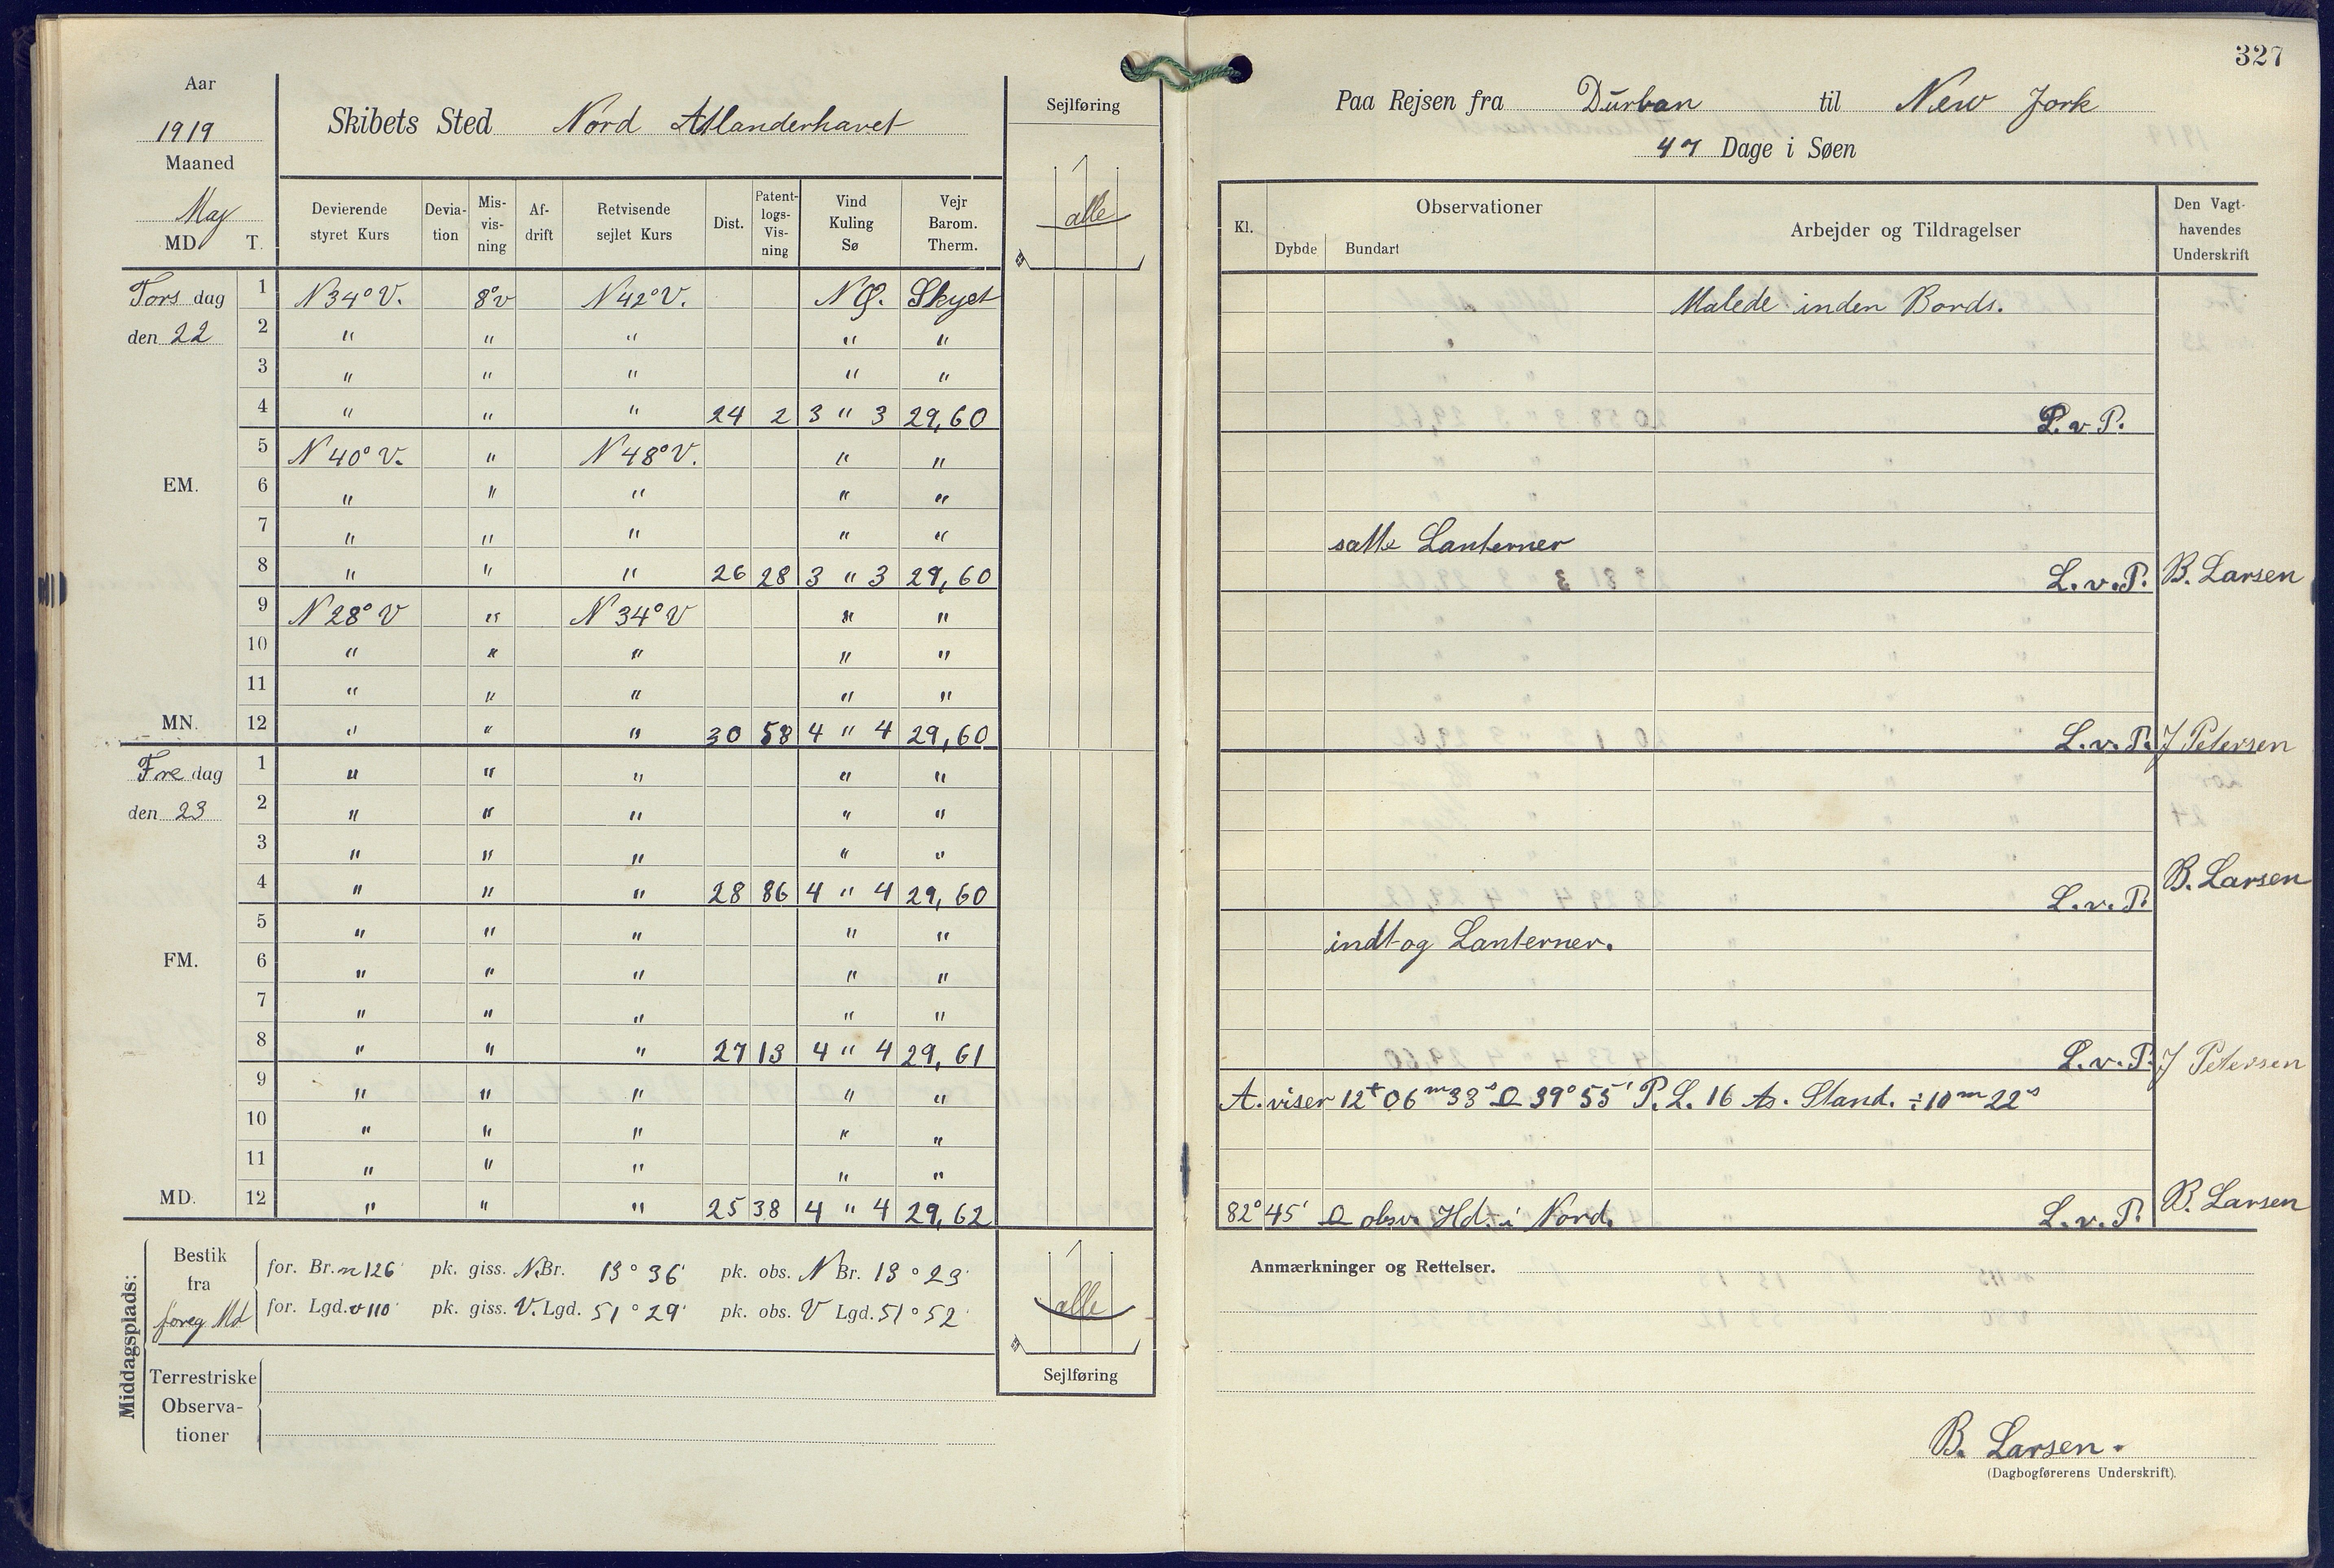 327
Aar
1919
Maaned
May
MD. T.
Skibets Sted Nord Atlanderhavet
Sejlføring
alle
Paa Rejsen fra Durban til New Jork
47 Dage i Søen
Devierende styret Kurs
Devia-tion
Mis-vis-ning
Af-drift
Retvisende sejlet Kurs
Dist.
Patent-logs-Vis-ning
Vind Kuling Sø
Vejr Barom. Therm.
Kl.
Observationer
Dybde Bundart
Arbejder og Tildragelser
Den Vagt-havendes Underskrift
Tors dag 1 N34°V. 8°v N42°V. NØ. Skyet Malede inden Bords.
den 22 2 " " " " "
3 " " " " "
4 " " " 24 2 3 " 3 29,60 L. v P.
5 N40°V. " N48°V. " "
EM. 6 " " " " "
7 " " " " " satte Lanterner
8 " " " 26 28 3 " 3 29,60 L. v. P. B. Larsen
9 N28°V " N34°V " "
10 " " " " "
11 " " " " "
MN. 12 " " " 30 58 4 " 4 29,60 L. v. P. J Petersen
Fre dag 1 " " " " "
den 23 2 " " " " "
3 " " " " "
4 " " " 28 86 4 " 4 29,60 L. v. P. B. Larsen
5 " " " " " indtog Lanterner.
FM. 6 " " " " "
7 " " " " "
8 " " " 27 13 4 " 4 29,61 L. v. P. J Petersen
9 " " " " " A. viser 12 06 m 33 s 39° 55' P. L. 16 Stand. ÷ 10 m 22 s
10 " " " " "
11 " " " " "
MD. 12 " " " 25 38 4 " 4 29,62 82° 45' obsv. Hd. i Nord. L. v. P. B. Larsen
Middagsplads:
Bestik fra foreg Md
for. Br. n 126' pk. giss. N. Br. 13° 36' pk. obs. N Br. 13° 23'
for. Lgd. v 110' pk. giss. V. Lgd. 51° 29' pk. obs. V Lgd. 51° 52'
Terrestriske
Observa-
tioner
alle
Sejlføring
Anmærkninger og Rettelser.
B. Larsen.
(Dagbogførerens Underskrift).